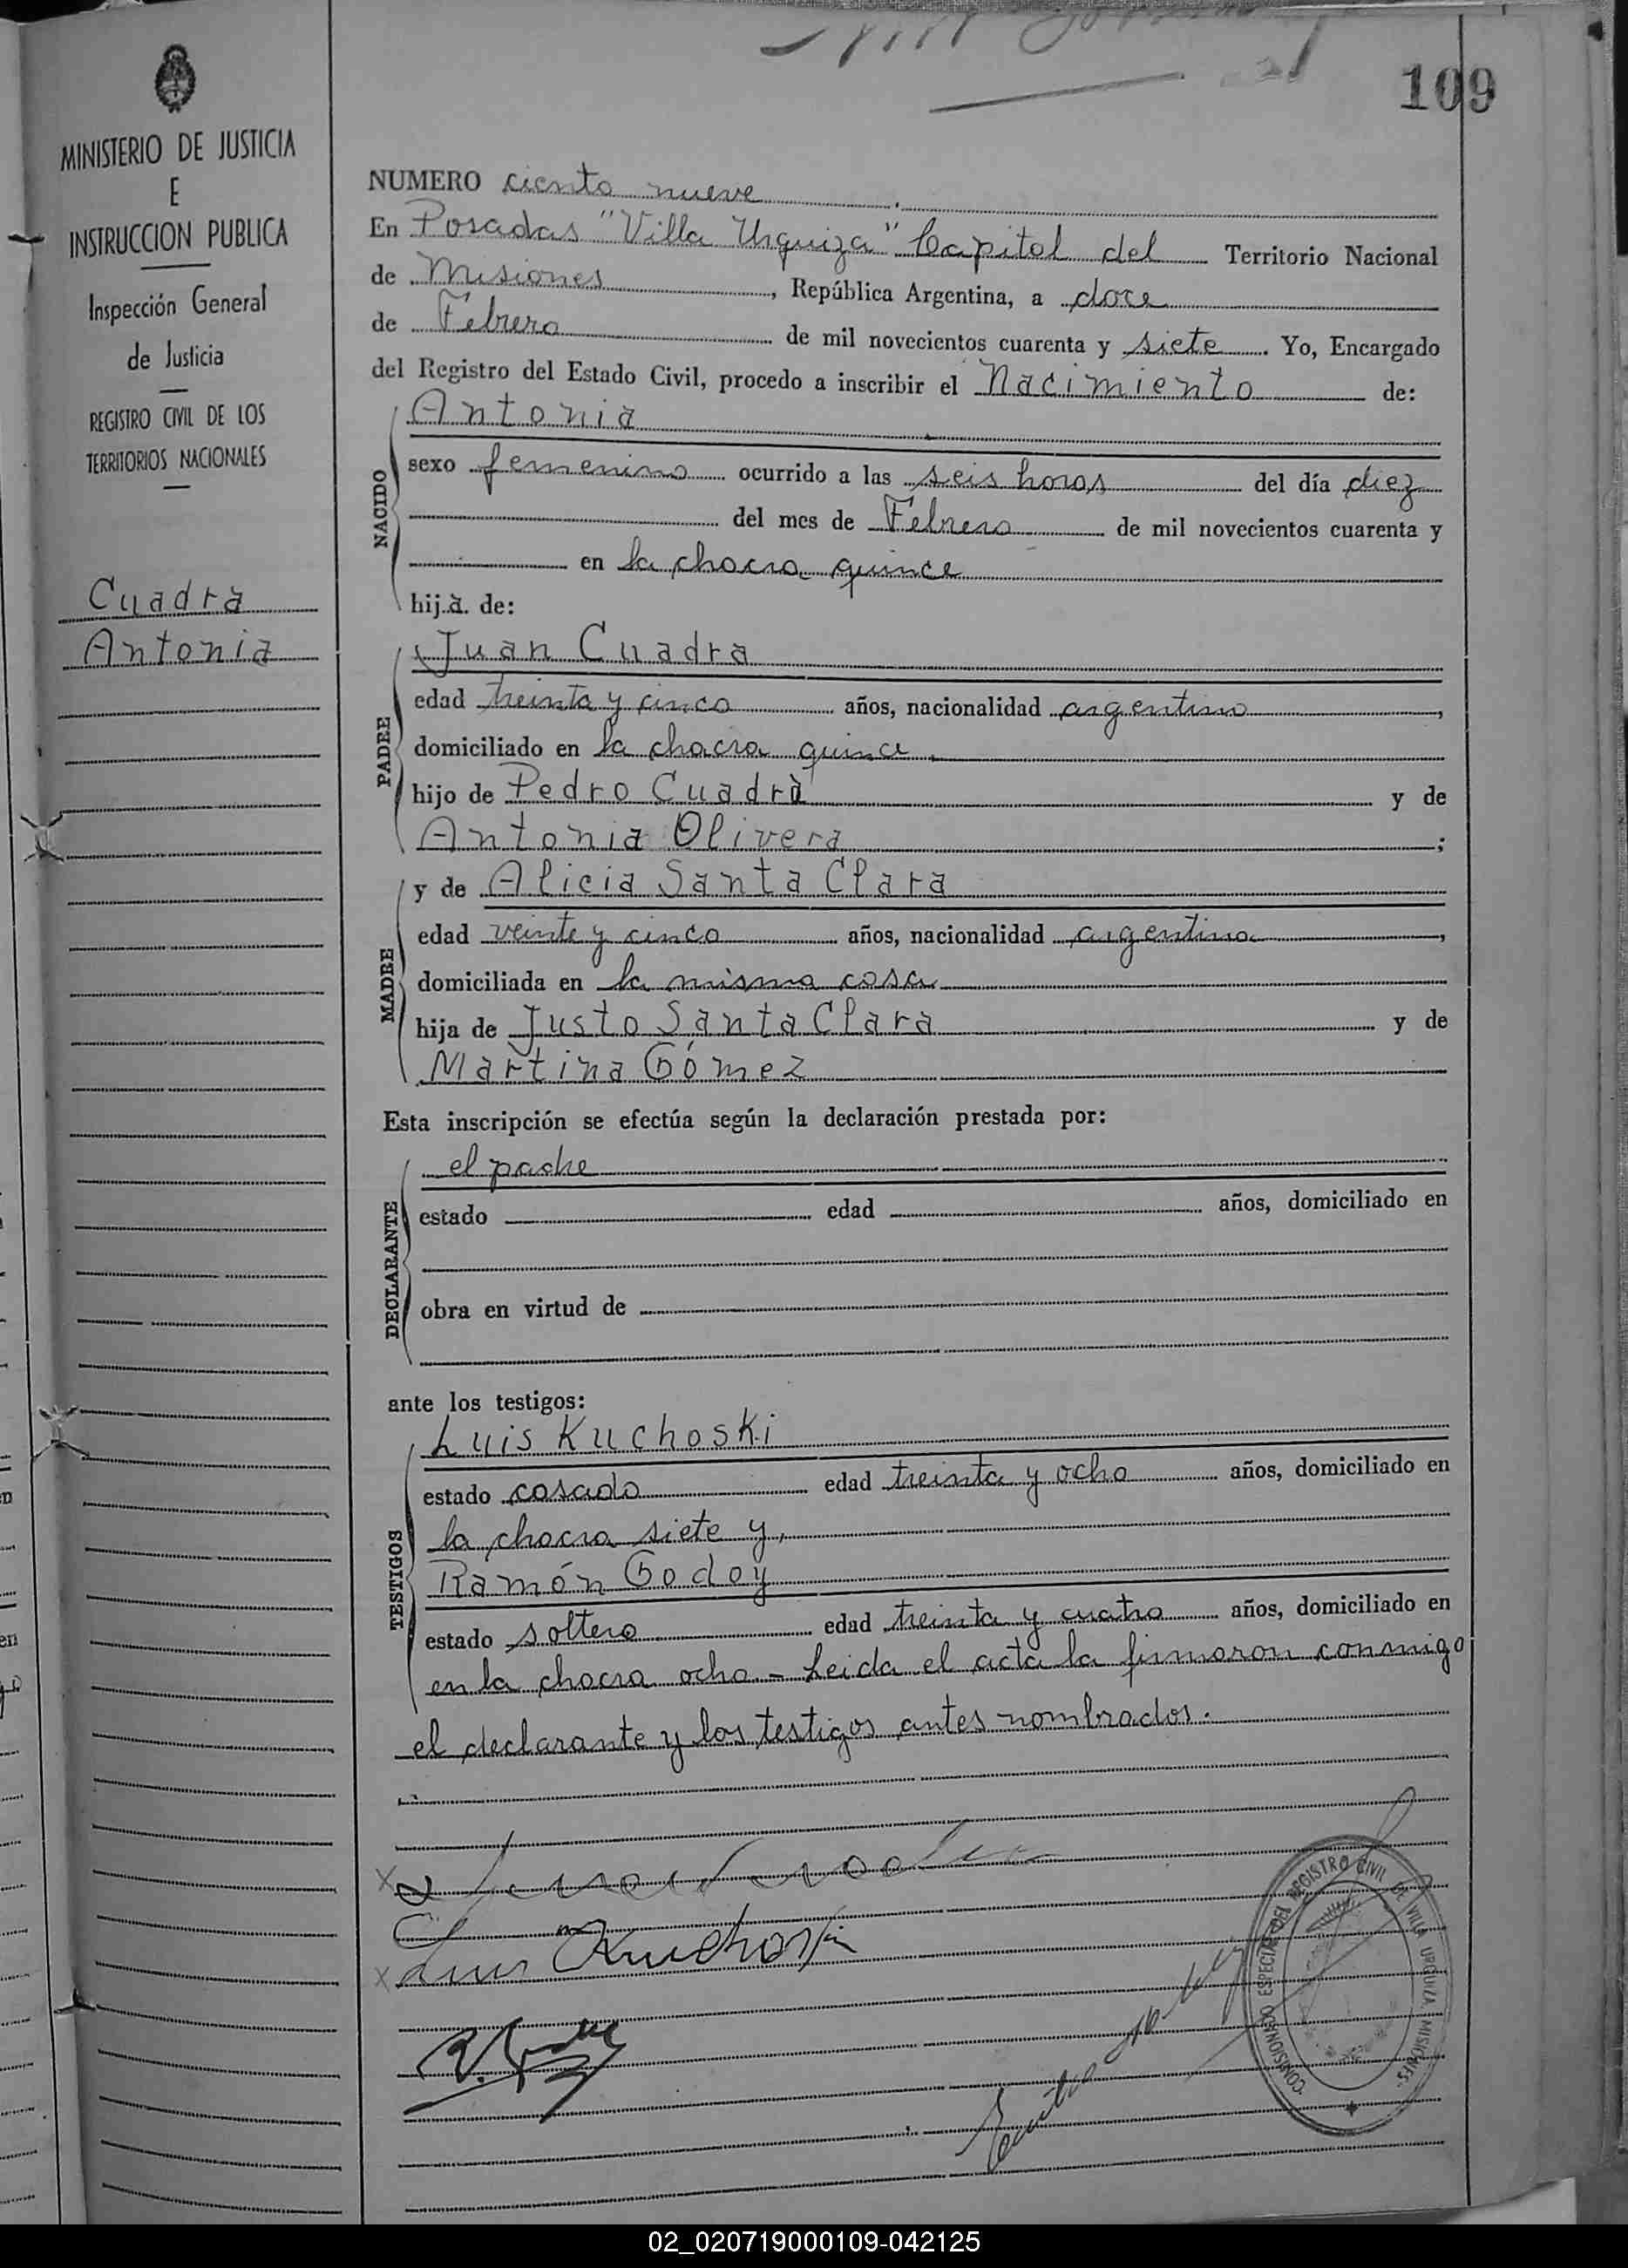 109
MINISTERIO DE JUSTICIA
E
INSTRUCCION PUBLICA
Inspección General
de Justicia
REGISTRO CIVIL DE LOS
TERRITORIOS NACIONALES
Cuadra
Antonia
NUMERO ciento nueve
En Posadas "Villa Urquiza" Capital del Territorio Nacional
de Misiones, República Argentina, a doce
de Febrero de mil novecientos cuarenta y siete. Yo, Encargado
del Registro del Estado Civil, procedo a inscribir el Nacimiento de:
Antonia
NACIDO
sexo femenino ocurrido a las seis horas del día diez
del mes de Febrero de mil novecientos cuarenta y
en la chacra quince
hij.a. de:
Juan Cuadra
PADRE
edad treinta y cinco años, nacionalidad argentino,
domiciliado en la chacra quince
hijo de Pedro Cuadra y de
Antonia Olivera;
y de Alicia Santa Clara
MADRE
edad veinte y cinco años, nacionalidad argentina,
domiciliada en la misma casa
hija de Justo Santa Clara y de
Martina Gómez
Esta inscripción se efectúa según la declaración prestada por:
el padre
DECLARANTE
estado edad años, domiciliado en
obra en virtud de
ante los testigos:
Luis Kuchoski
TESTIGOS
estado casado edad treinta y ocho años, domiciliado en
la chacra siete y,
Ramón Godoy
estado soltero edad treinta y cuatro años, domiciliado en
en la chacra ocho - Leida el acta la firmaron conmigo
el declarante y los testigos antes nombrados.
Luis Kuchoski
COMISIONADO ESPECIAL DEL REGISTRO CIVIL DE VILLA URQUIZA MISIONES
02_020719000109-042125